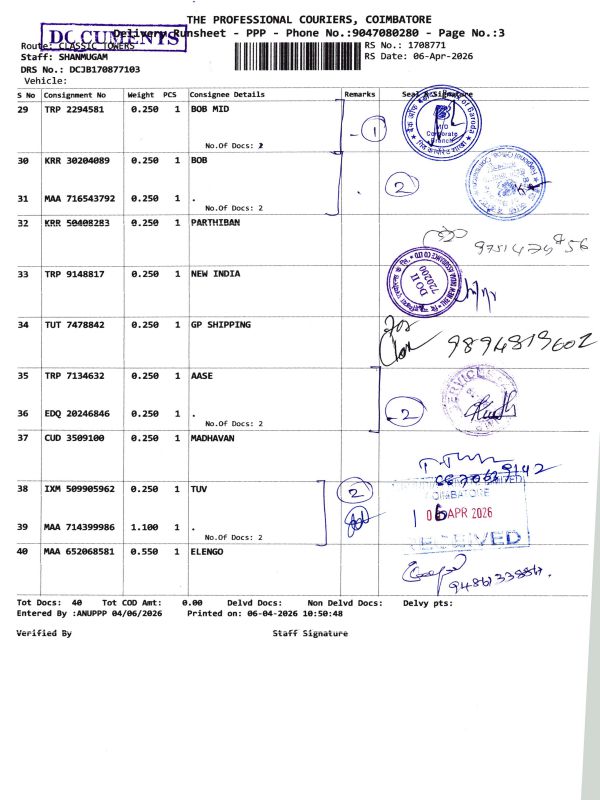 THE PROFESSIONAL COURIERS, COIMBATORE
DOCUMENTS
Delivery Runsheet - PPP - Phone No.:9047080280 - Page No.:3
Route: CLASSIC TOWERS
RS No.: 1708771
Staff: SHANMUGAM
RS Date: 06-Apr-2026
DRS No.: DCJB170877103
Vehicle:
S No Consignment No Weight PCS Consignee Details Remarks Seal & Signature
29 TRP 2294581 0.250 1 BOB MID
No.Of Docs: 1
1
Corporate
Branch
30 KRR 30204089 0.250 1 BOB
2
31 MAA 716543792 0.250 1 .
No.Of Docs: 2
32 KRR 50408283 0.250 1 PARTHIBAN
33 TRP 9148817 0.250 1 NEW INDIA
DO II
720200
34 TUT 7478842 0.250 1 GP SHIPPING
For
9894819602
35 TRP 7134632 0.250 1 AASE
36 EDQ 20246846 0.250 1 .
No.Of Docs: 2
2
37 CUD 3509100 0.250 1 MADHAVAN
38 IXM 509905962 0.250 1 TUV
2
COIMBATORE
06 APR 2026
RECEIVED
39 MAA 714399986 1.100 1 .
No.Of Docs: 2
40 MAA 652068581 0.550 1 ELENGO
Tot Docs: 40 Tot COD Amt: 0.00 Delvd Docs: Non Delvd Docs: Delvy pts:
Entered By :ANUPPP 04/06/2026 Printed on: 06-04-2026 10:50:48
Verified By Staff Signature